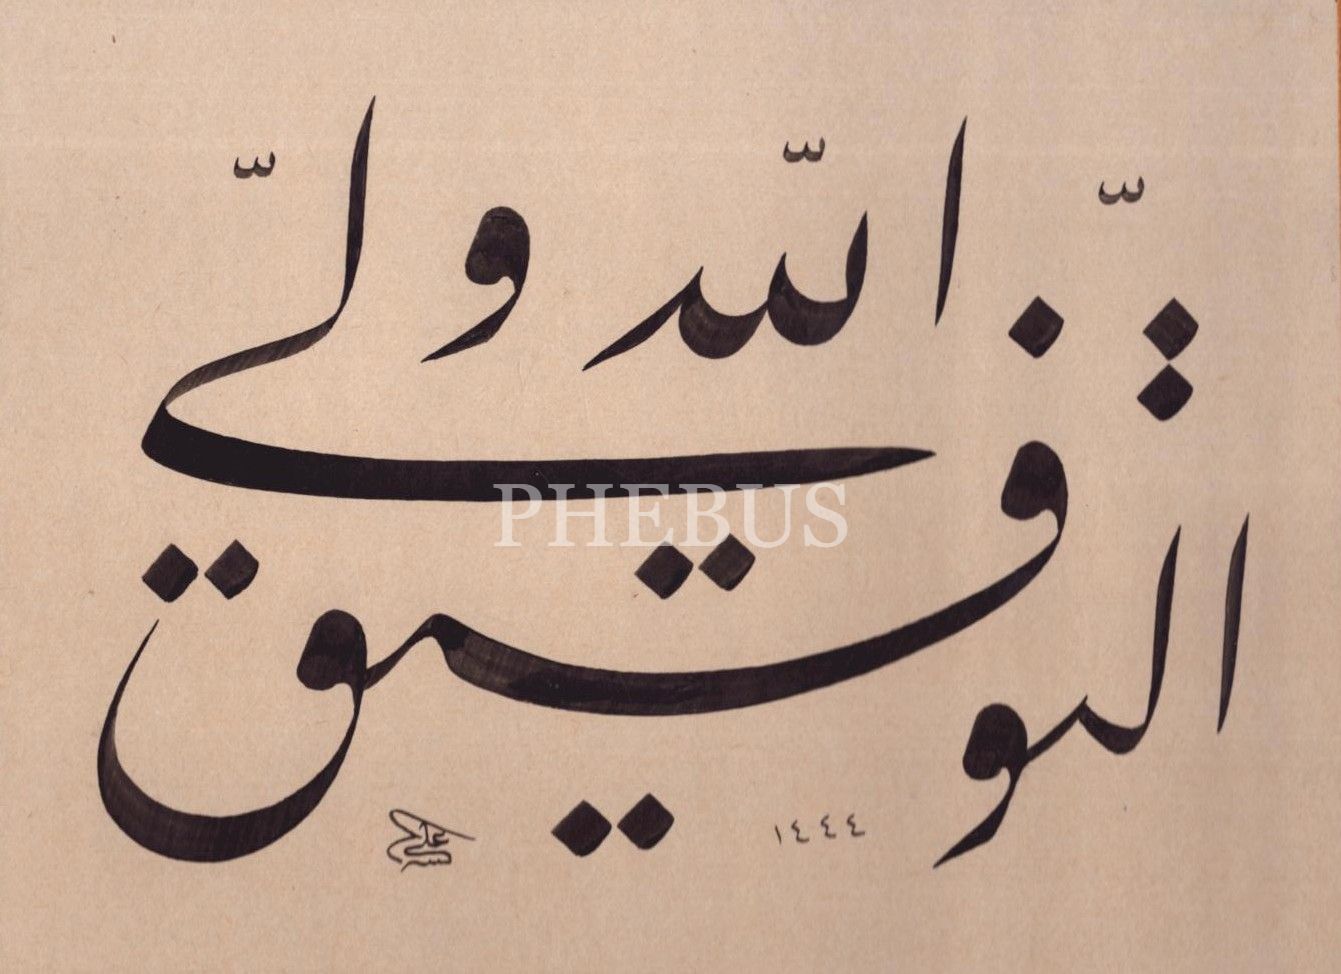 اللّه ولىّ
التّوفيق
١٤٤٤
PHEBUS